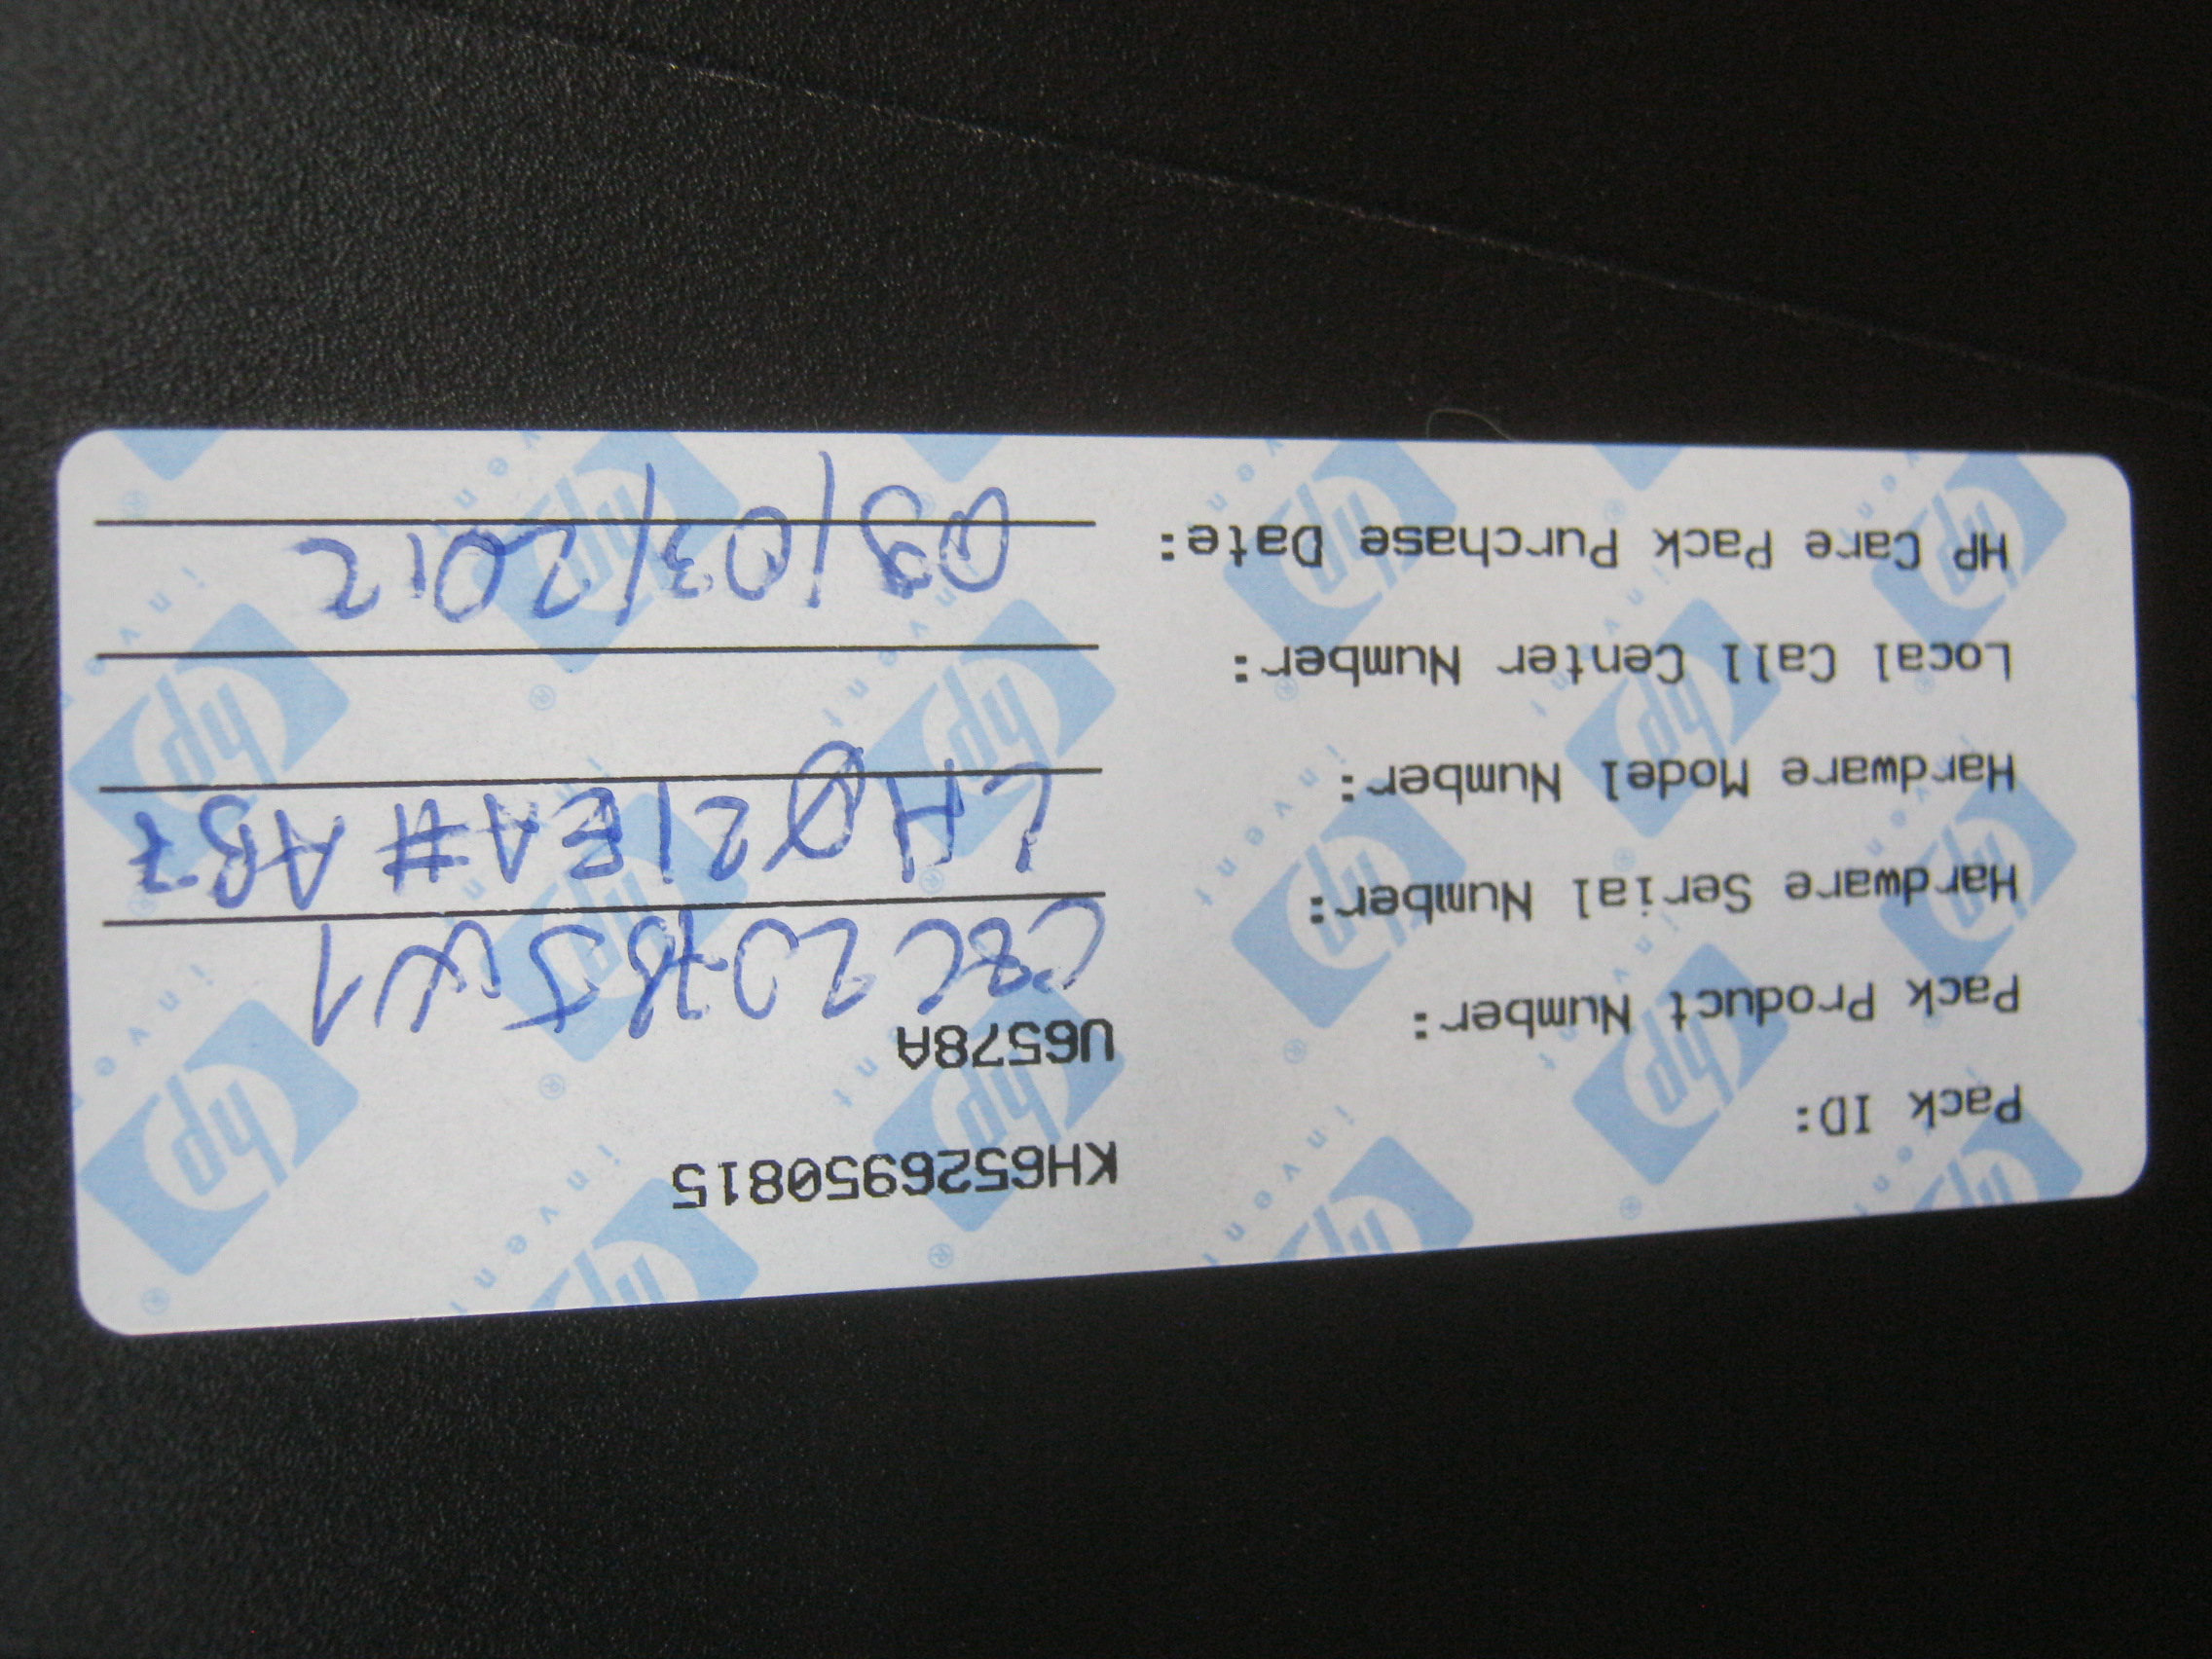 Pack ID: KH6526950815
Pack Product Number: U6578A
Hardware Serial Number:
Hardware Model Number: LHØ21EA#AB7
Local Call Center Number:
HP Care Pack Purchase Date: 09/03/2012